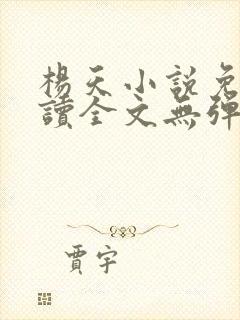 楊天小說免
讀全文無彈
賈宇